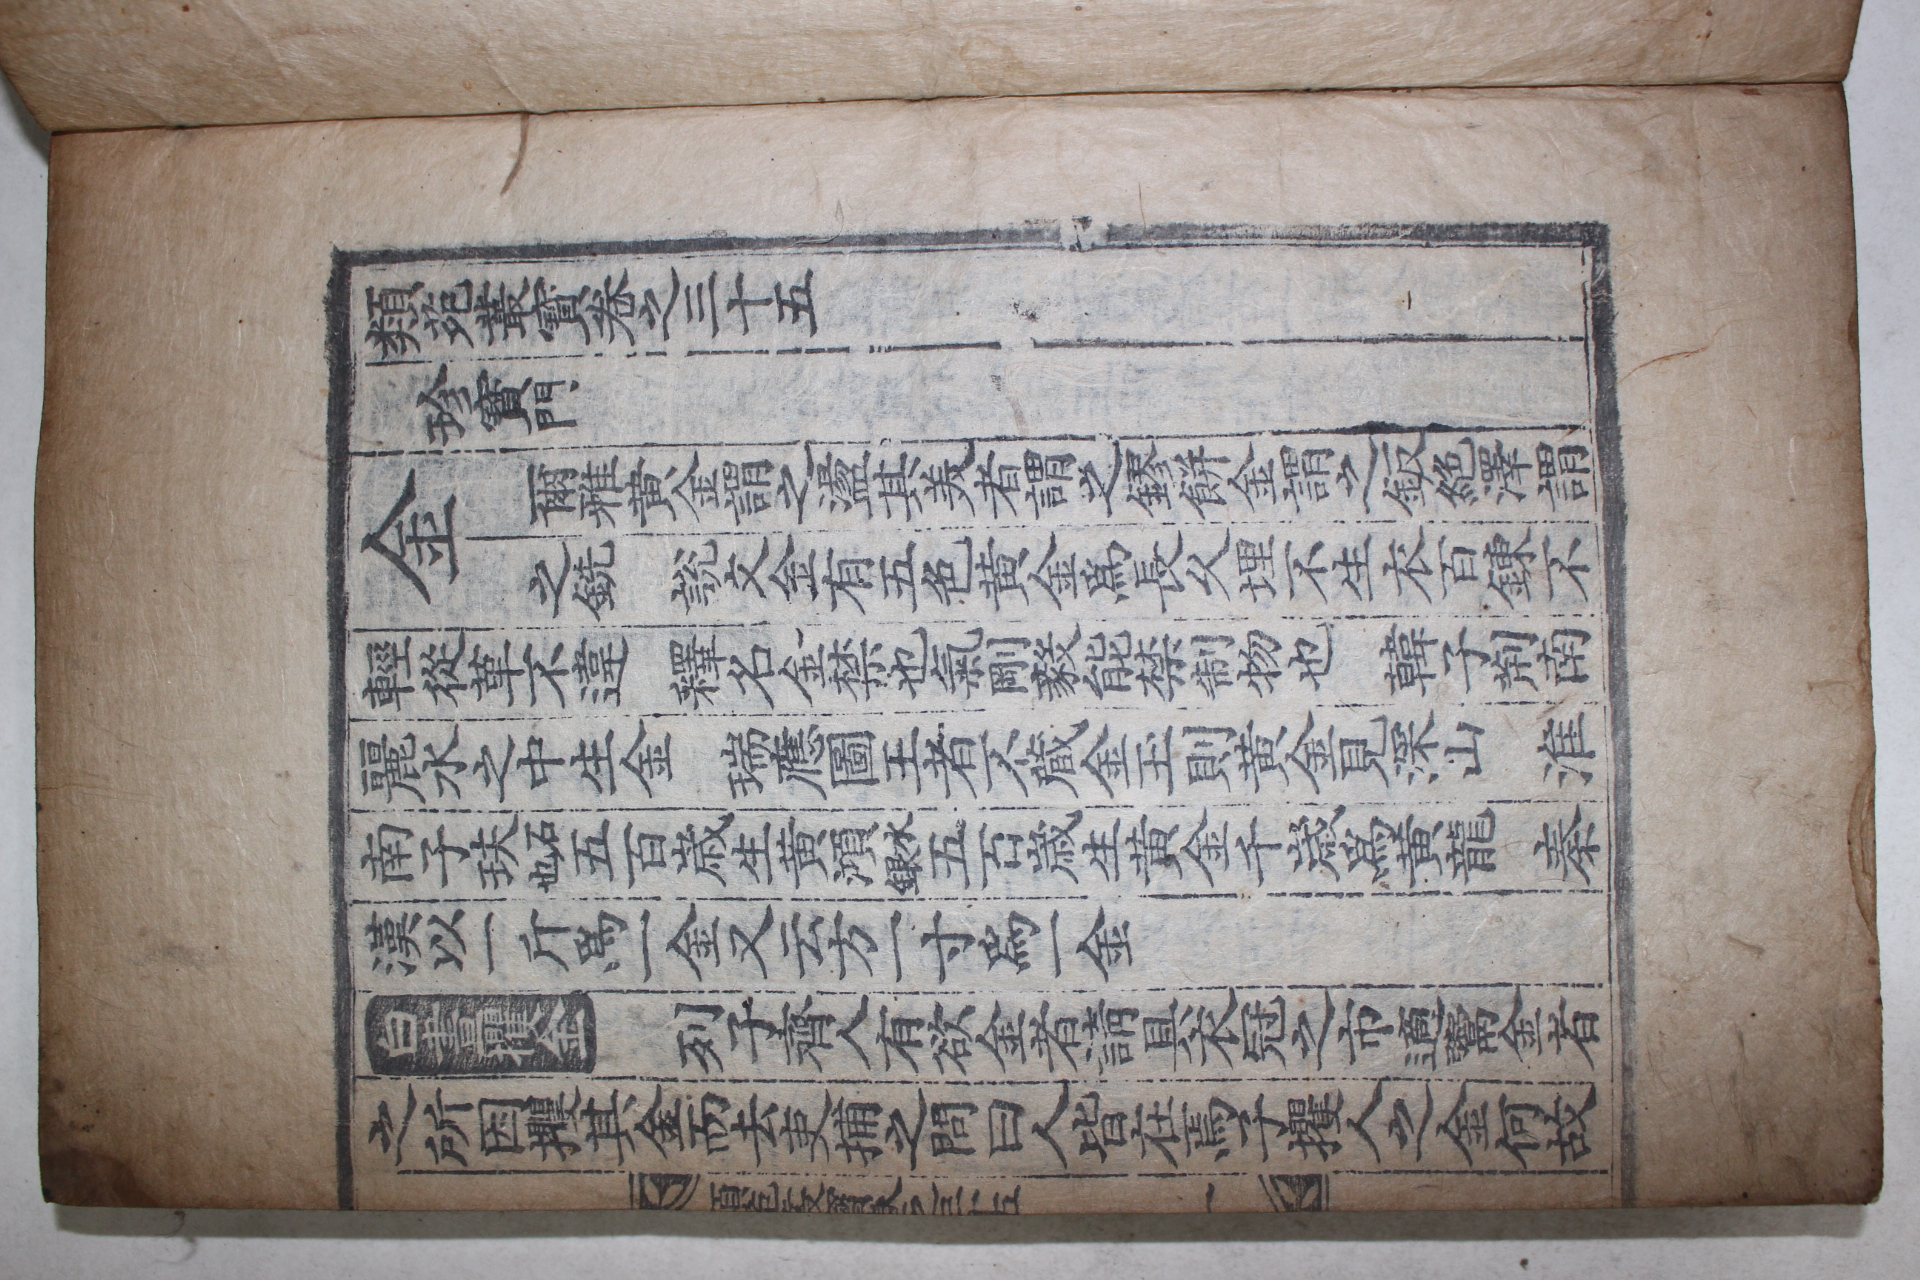 類苑叢寶卷之三十五
珍寶門
金
爾雅黃金謂之璗其美者謂之鏐餅金謂之鈑絶澤謂
之銑 說文金有五色黃金爲長久埋不生衣百鍊不
輕從革不違 釋名金禁也氣剛毅能禁制物也 韓子荊南
麗水之中生金 瑞應圖王者不藏金玉則黃金見深山 淮
南子玦砳也五百歲生黃澒水銀五百歲生黃金千歲爲黃龍 秦
漢以一斤爲一金又云方一寸爲一金
白晝攫金 列子齊人有欲金者請具衣冠之市適鬻金者
之所因攫其金而去吏捕之問曰人皆在焉子攫人之金何故
類苑叢寶卷之三十五 一